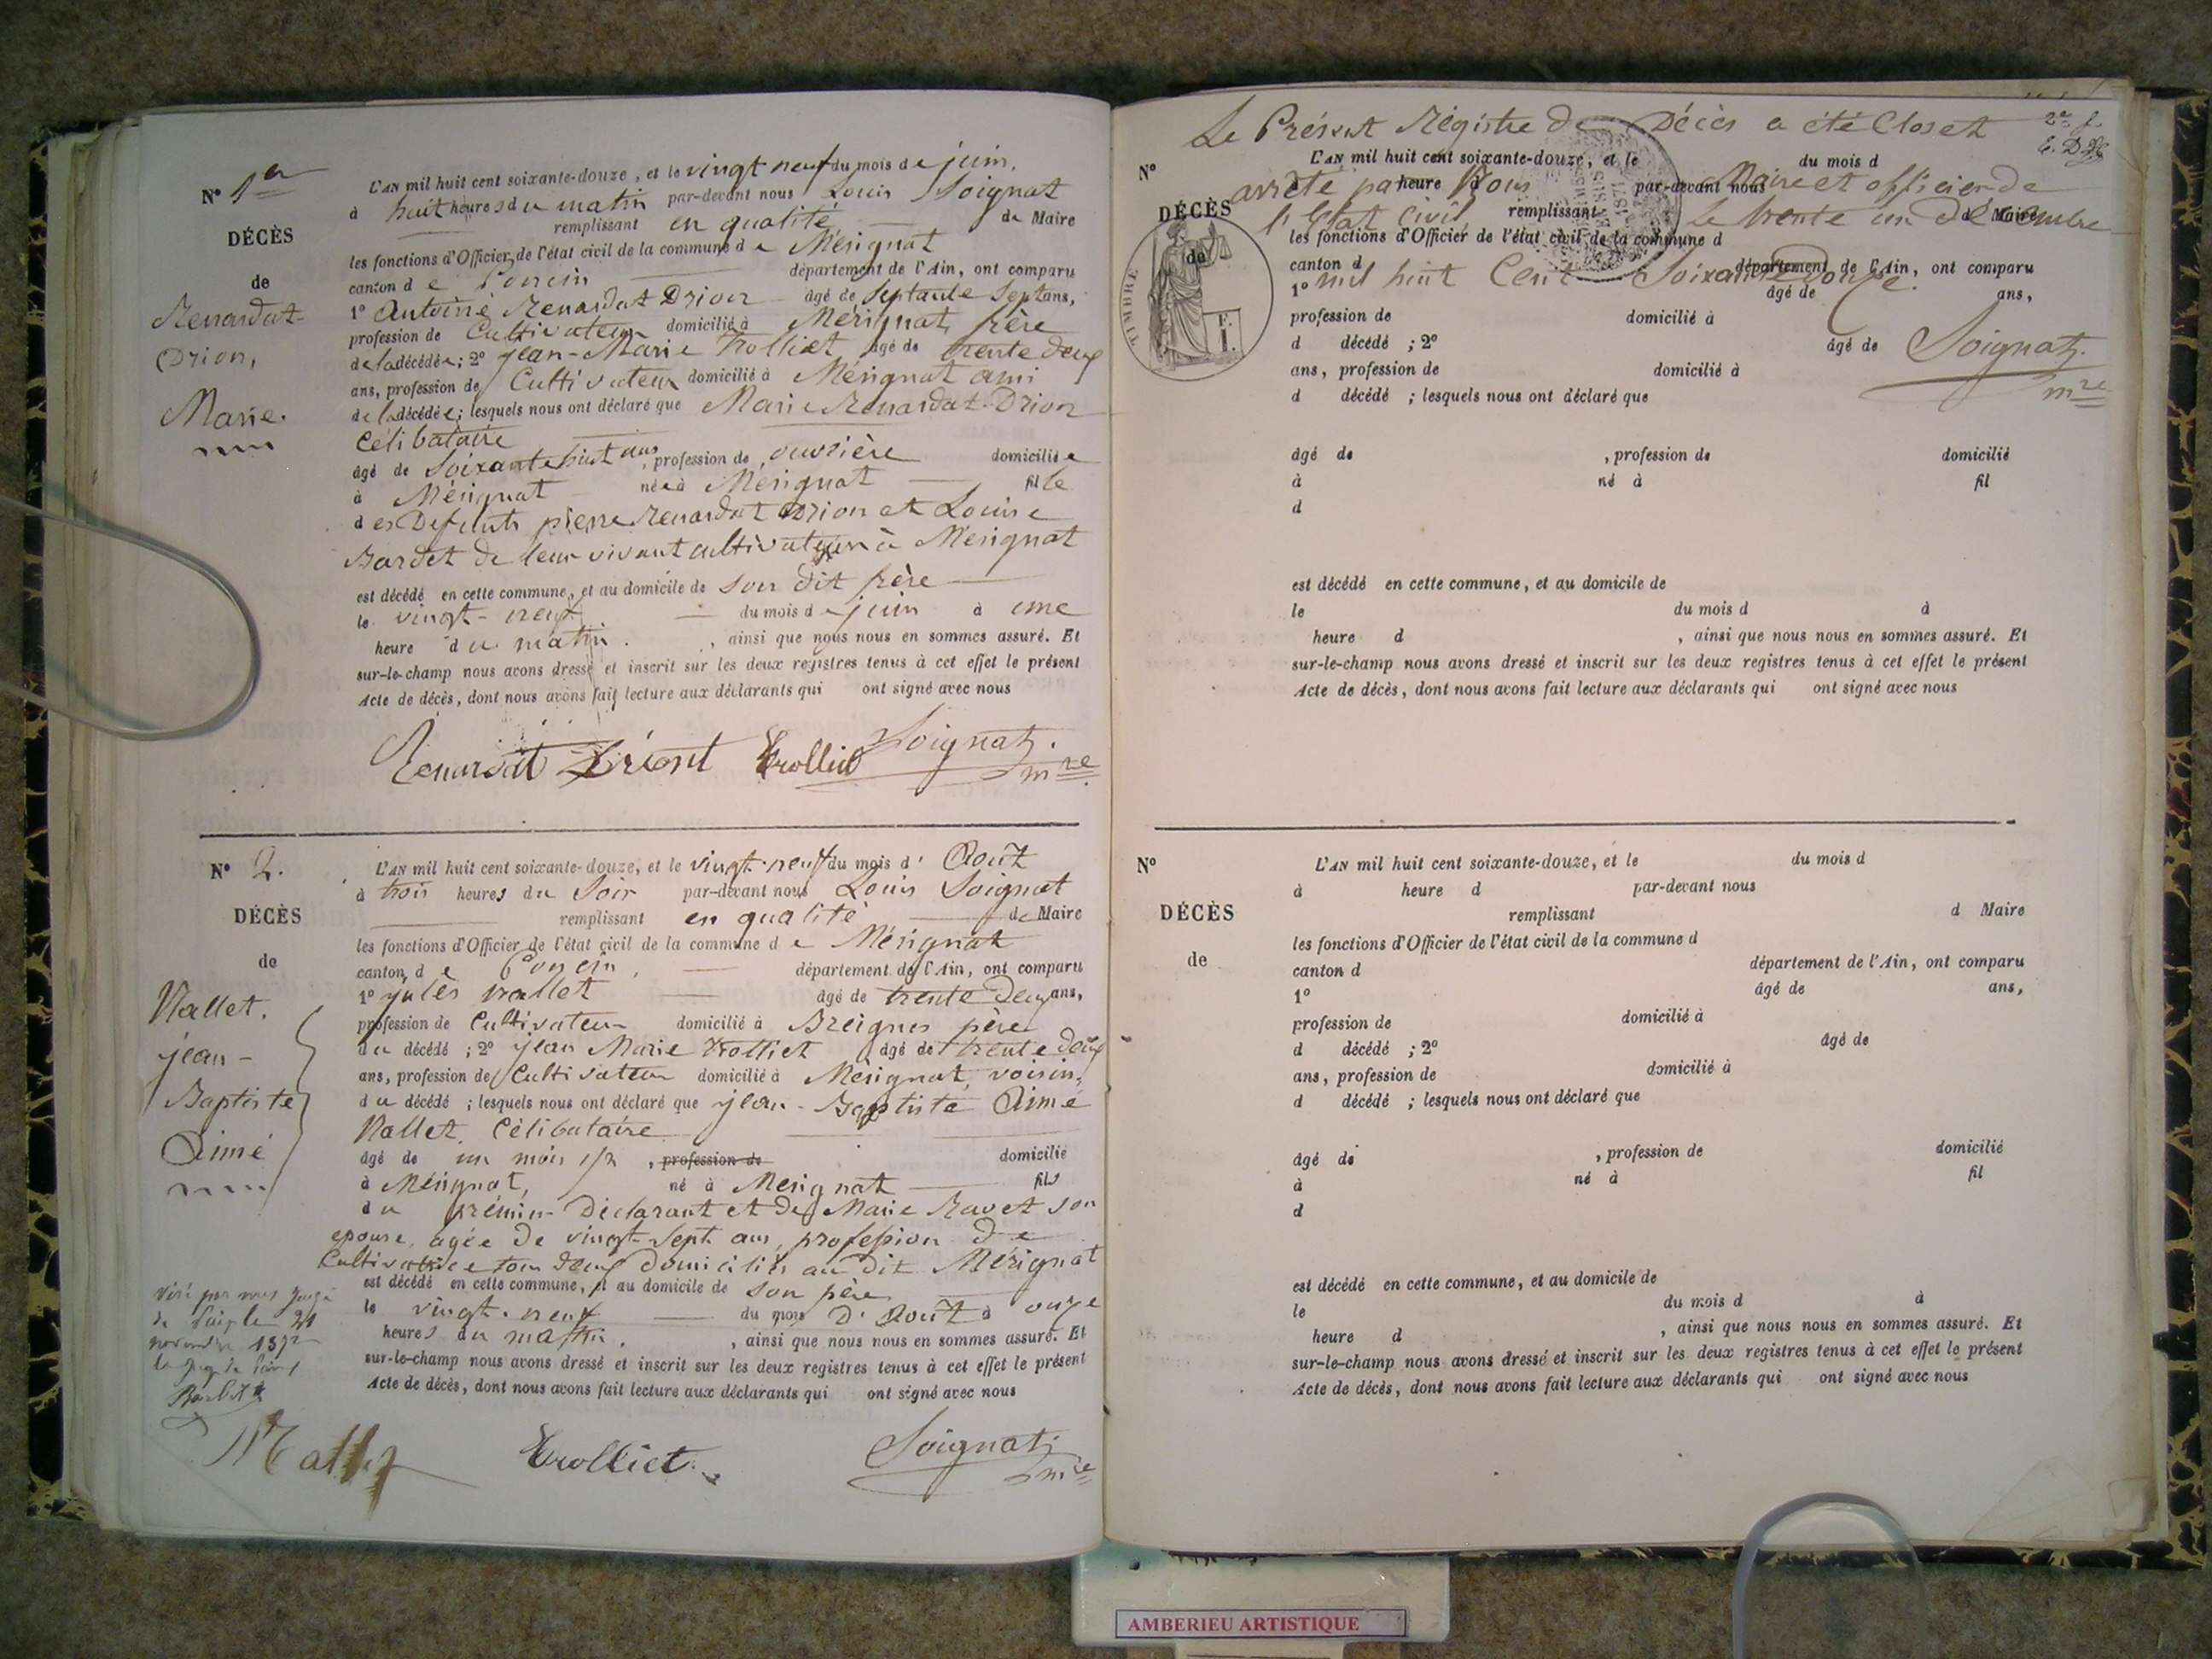 N° 1er
DÉCÈS
de
Renardat-
Drion,
Marie.
L'AN mil huit cent soixante-douze, et le vingt neuf du mois de juin,
à huit heures du matin par-devant nous Louis Soignat
remplissant en qualité de Maire
les fonctions d'Officier de l'état civil de la commune de Mérignat
canton de Poncin département de l'Ain, ont comparu
1° Antoine Renardat Drion âgé de Septante Sept ans,
profession de Cultivateur domicilié à Mérignat, frère
de la décédée; 2° jean-Marie Trolliet âgé de trente deux
ans, profession de Cultivateur domicilié à Mérignat ami
de la décédée; lesquels nous ont déclaré que Marie Renardat-Drion
Célibataire
âgé de Soixante huit ans, profession de ouvrière domiciliée
à Mérignat née à Mérignat fille
des Defunts pierre Renardat Drion et Louise
Bardet de leur vivant cultivateurs à Mérignat
est décédé en cette commune, et au domicile de son dit frère
le vingt-neuf du mois de juin à une
heure du matin, ainsi que nous nous en sommes assuré. Et
sur-le-champ nous avons dressé et inscrit sur les deux registres tenus à cet effet le présent
Acte de décès, dont nous avons fait lecture aux déclarants qui ont signé avec nous
Renardat Driont Trolliet Soignat.
mre
N° 2.
DÉCÈS
de
Nallet.
jean-
Baptiste
Aimé
L'AN mil huit cent soixante-douze, et le vingt-neuf du mois d'Août
à trois heures du Soir par-devant nous Louis Soignat
remplissant en qualité de Maire
les fonctions d'Officier de l'état civil de la commune de Mérignat
canton de Poncin, département de l'Ain, ont comparu
1° jules Nallet âgé de trente deux ans,
profession de Cultivateur domicilié à père
du décédé; 2° jean Marie Trolliet âgé de trente deux
ans, profession de Cultivateur domicilié à Mérignat, voisin,
du décédé; lesquels nous ont déclaré que jean-Baptiste Aimé
Nallet, Célibataire
âgé de un mois 1/2, profession de domicilié
à Mérignat, né à Mérignat fils
du prémier Déclarant et de Marie Ravet son
epouse, agée de vingt-sept ans, profession de
Cultivatrice tous deux domiciliés au dit Mérignat
est décédé en cette commune, et au domicile de son père
le vingt-neuf du mois D'Août à onze
heures du matin, ainsi que nous nous en sommes assuré. Et
sur-le-champ nous avons dressé et inscrit sur les deux registres tenus à cet effet le présent
Acte de décès, dont nous avons fait lecture aux déclarants qui ont signé avec nous
Visé par nous juge
de Paix le 21
novembre 1872
le juge de Paix
Nallet Trolliet Soignat
mre
Le Présent Régistre de Décès a été Closet
arrêté par Nous Maire et officier de
l'Etat Civil Le trente un décembre
mil huit Cent Soixante Douze.
Soignat.
mre
2e f.
N°
DÉCÈS
de
TIMBRE
L'AN mil huit cent soixante-douze, et le du mois d
à heure d par-devant nous
remplissant d Maire
les fonctions d'Officier de l'état civil de la commune d
canton d département de l'Ain, ont comparu
1° âgé de ans,
profession de domicilié à
d décédé ; 2° âgé de
ans, profession de domicilié à
d décédé ; lesquels nous ont déclaré que
âgé de , profession de domicilié
à né à fil
d
est décédé en cette commune, et au domicile de
le du mois d à
heure d , ainsi que nous nous en sommes assuré. Et
sur-le-champ nous avons dressé et inscrit sur les deux registres tenus à cet effet le présent
Acte de décès, dont nous avons fait lecture aux déclarants qui ont signé avec nous
N°
DÉCÈS
de
L'AN mil huit cent soixante-douze, et le du mois d
à heure d par-devant nous
remplissant d Maire
les fonctions d'Officier de l'état civil de la commune d
canton d département de l'Ain, ont comparu
1° âgé de ans,
profession de domicilié à
d décédé ; 2° âgé de
ans, profession de domicilié à
d décédé ; lesquels nous ont déclaré que
âgé de , profession de domicilié
à né à fil
d
est décédé en cette commune, et au domicile de
le du mois d à
heure d , ainsi que nous nous en sommes assuré. Et
sur-le-champ nous avons dressé et inscrit sur les deux registres tenus à cet effet le présent
Acte de décès, dont nous avons fait lecture aux déclarants qui ont signé avec nous
AMBERIEU ARTISTIQUE